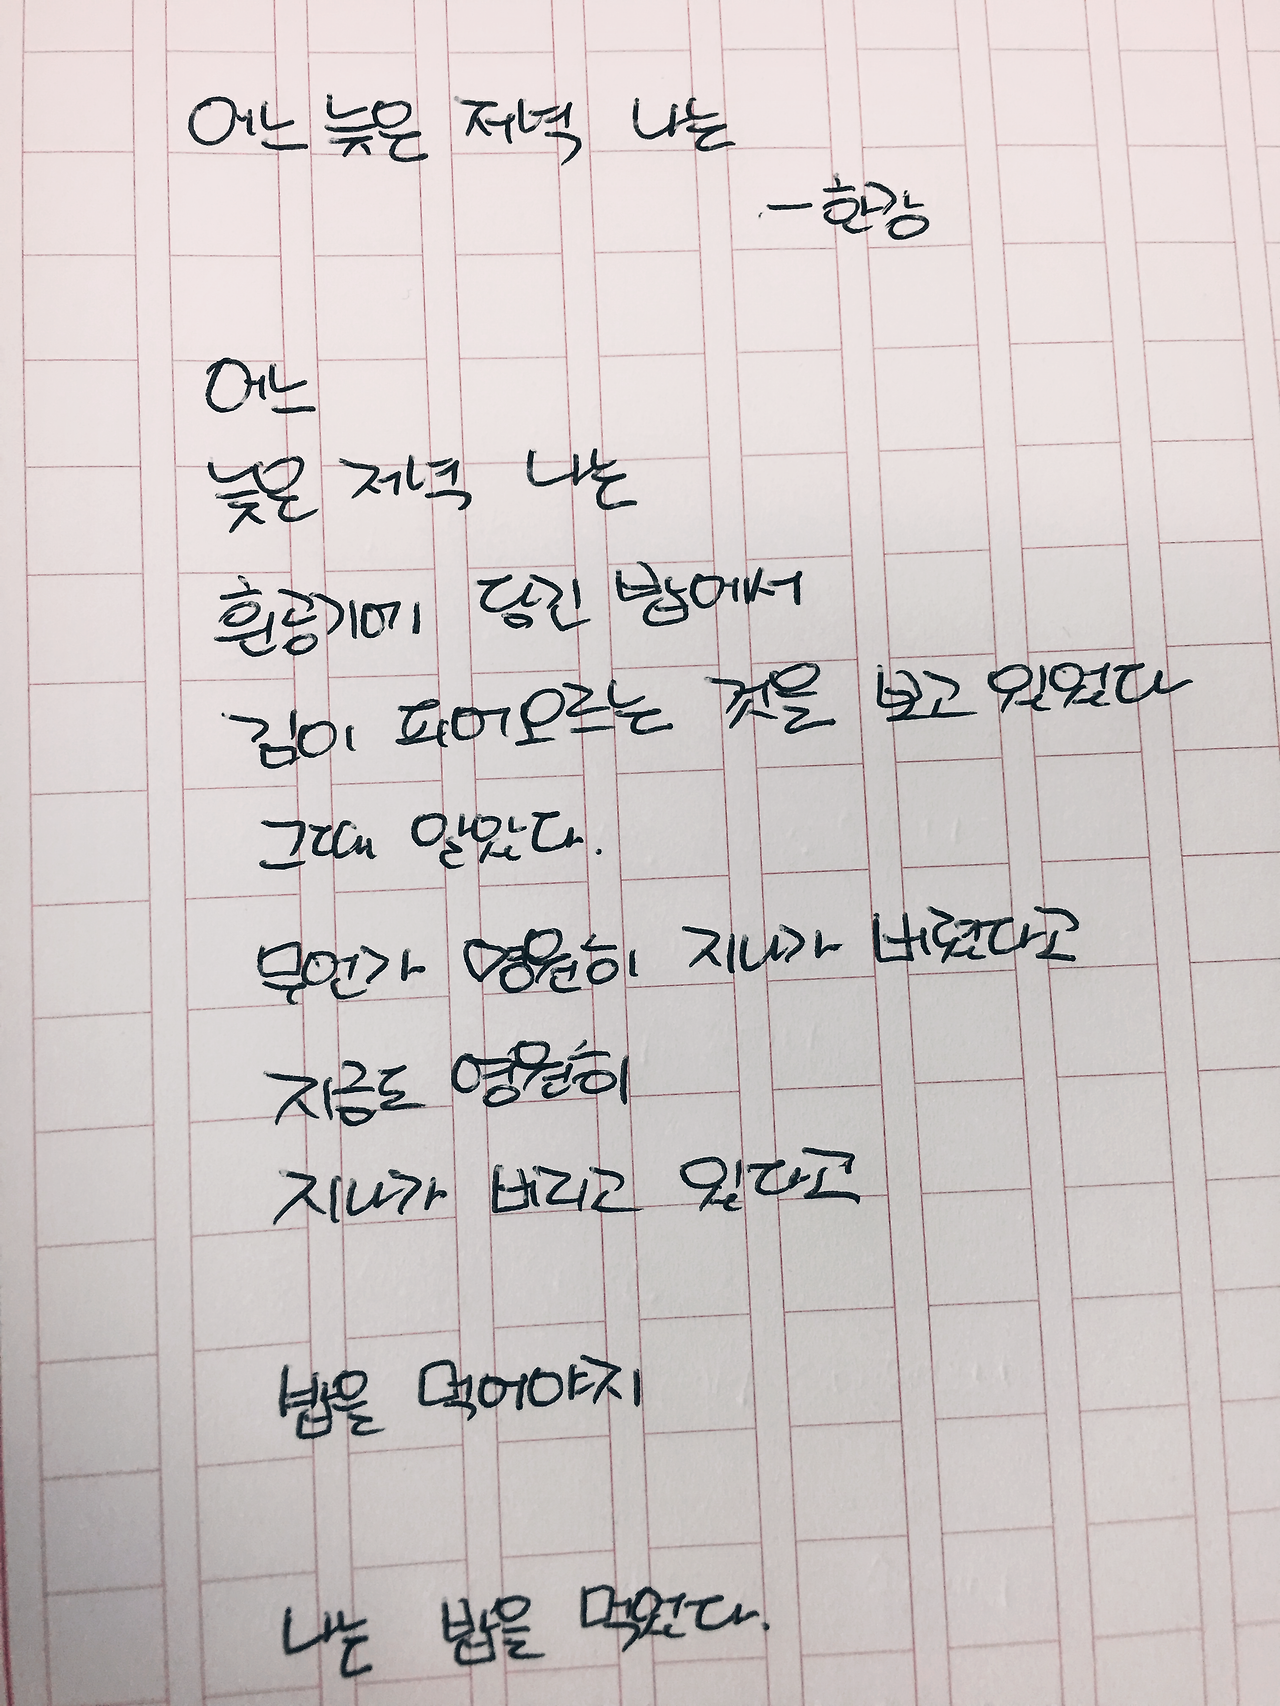 어느 늦은 저녁 나는
- 한강
어느
늦은 저녁 나는
흰공기에 담긴 밥에서
김이 피어오르는 것을 보고 있었다
그때 알았다.
무언가 영원히 지나가 버렸다고
지금도 영원히
지나가 버리고 있다고
밥을 먹어야지
나는 밥을 먹었다.